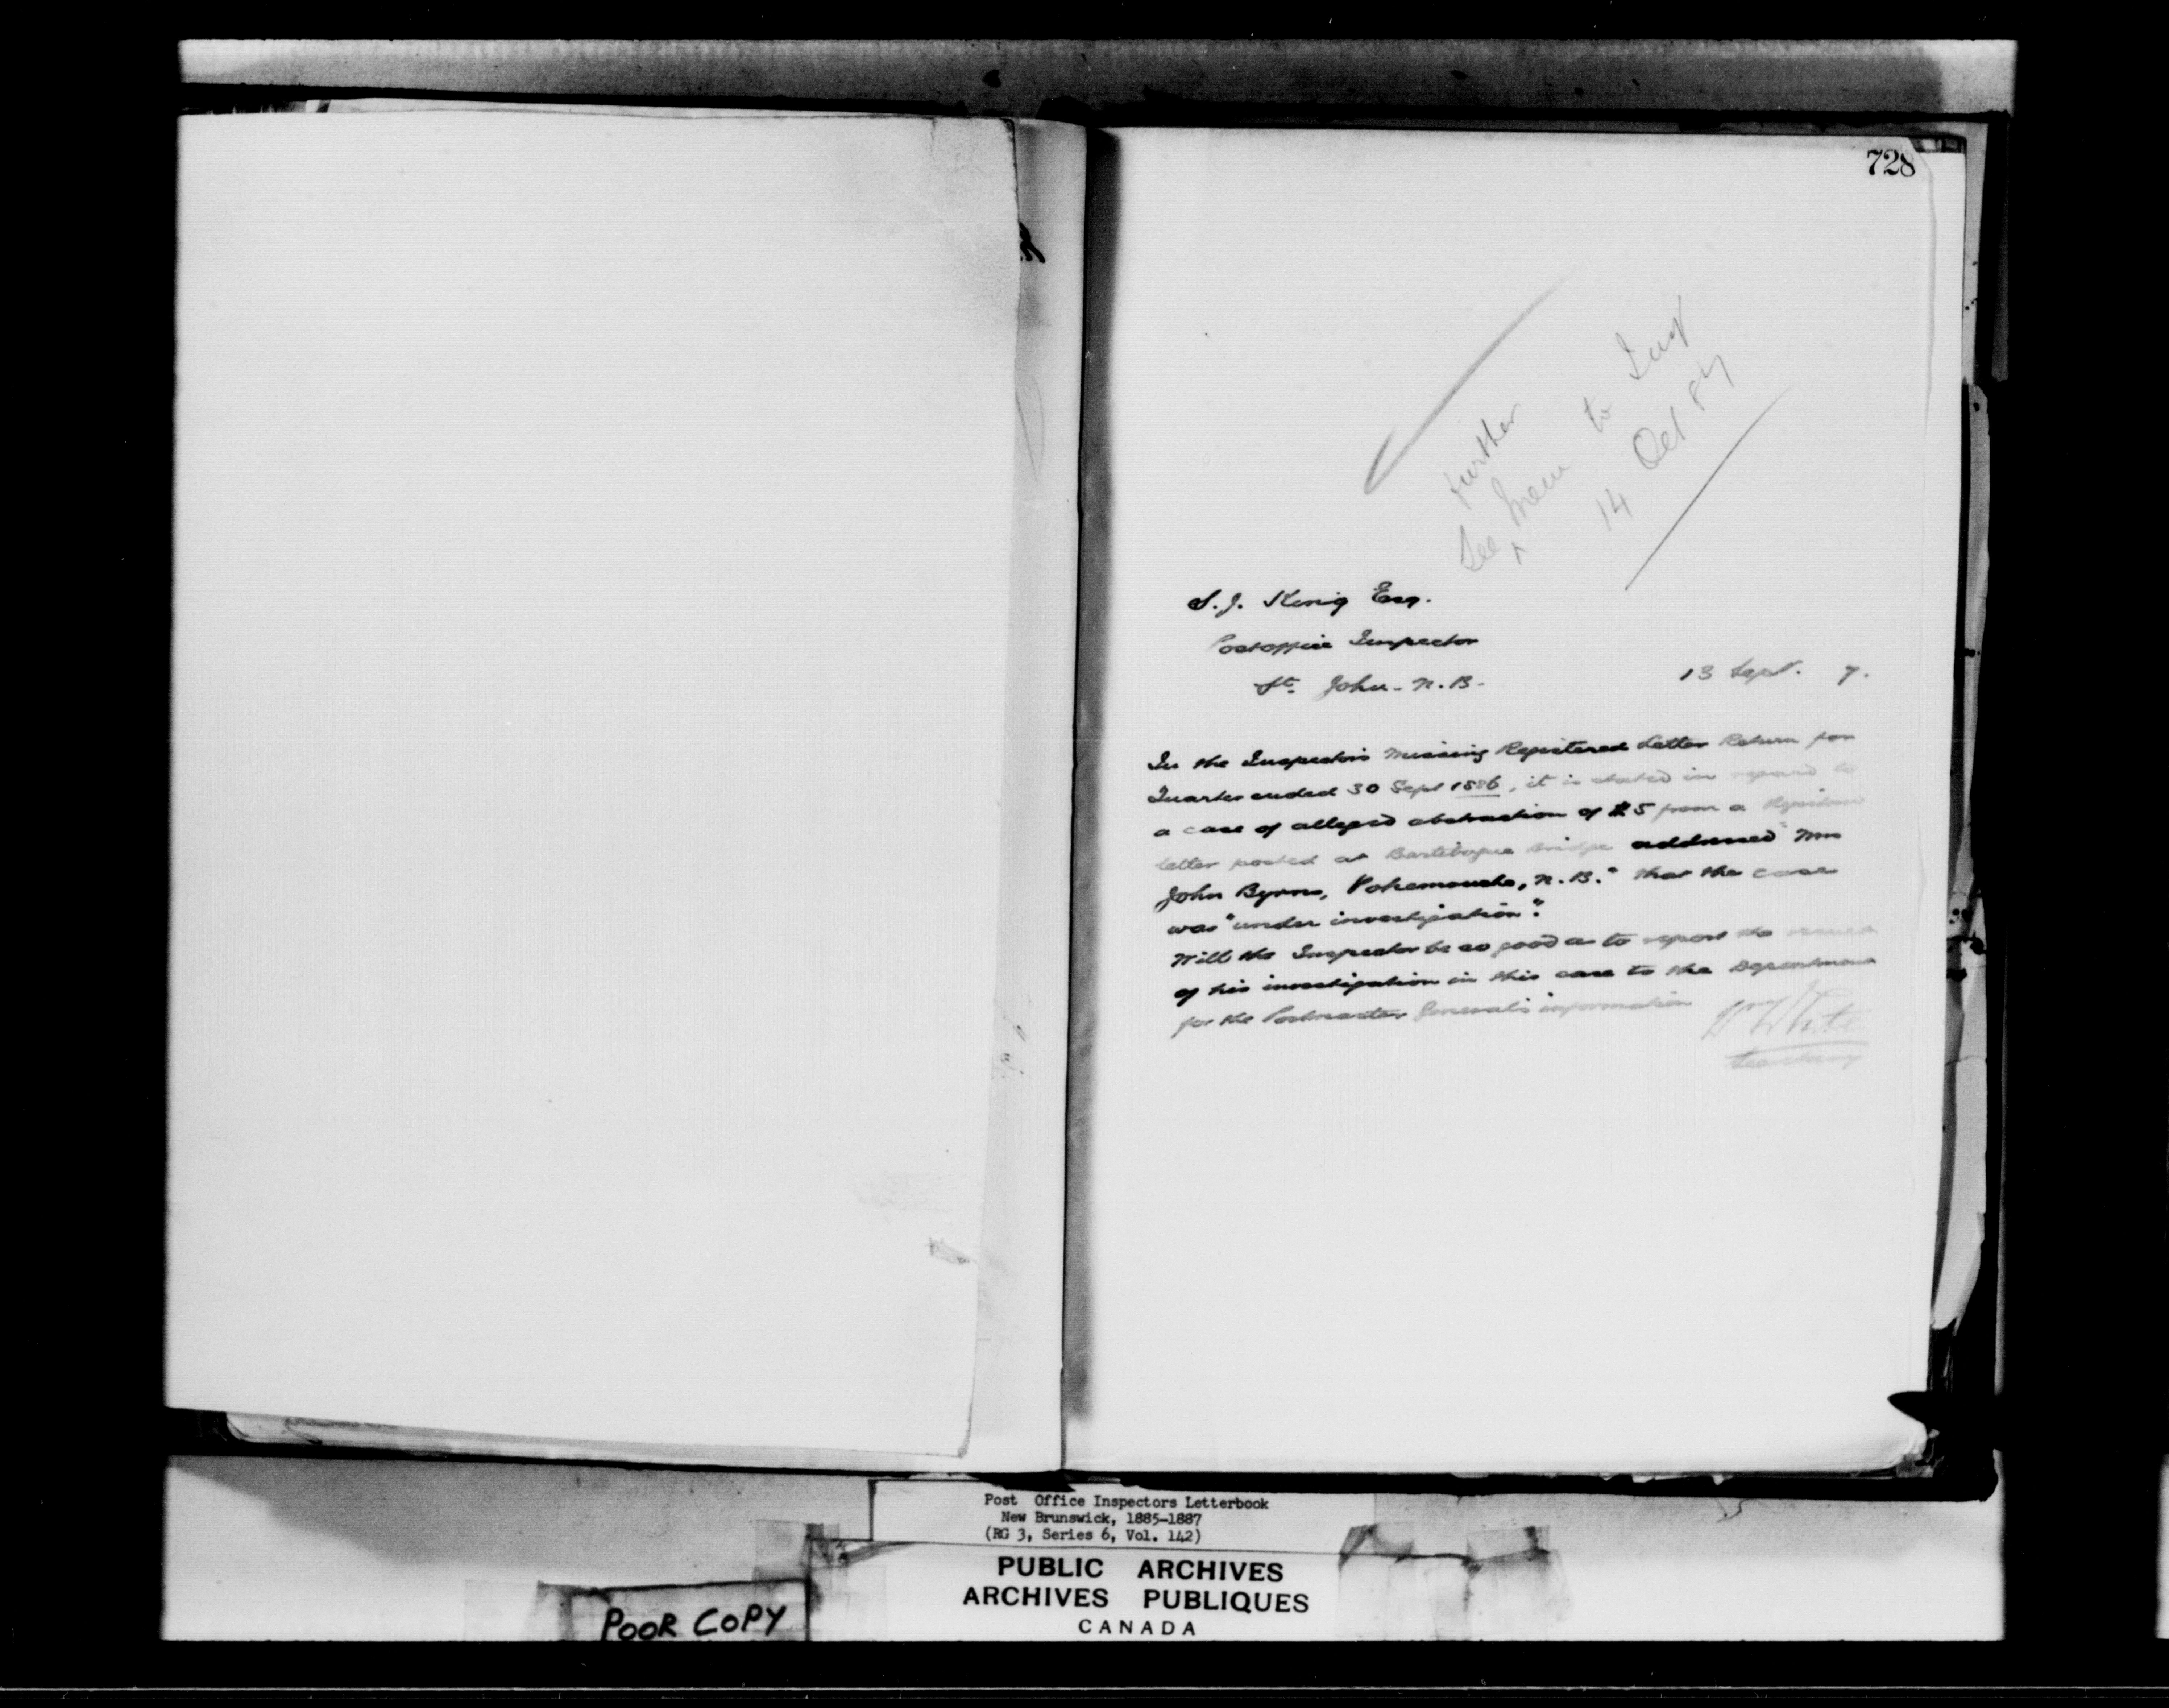 728
further
See ^ Mem to Insp
14 Oct 87
S. J. King Esq.
Postoffice Inspector
St. John - N.B.
13 Sept. 7.
In the Inspector's Missing Registered Letter Return for
Quarter ended 30 Sept 1886, it is stated in regard to
a case of alleged abstraction of $5 from a Registered
letter posted at Bartibogue Bridge addressed "Mrs
John Byrne, Pokemouche, N.B." that the case
was "under investigation".
Will the Inspector be so good as to report the result
of his investigation in this case to the Department
for the Postmaster General's information
Wm White
Secretary
Post Office Inspectors Letterbook
New Brunswick, 1885-1887
(RG 3, Series 6, Vol. 142)
PUBLIC ARCHIVES
ARCHIVES PUBLIQUES
CANADA
POOR COPY